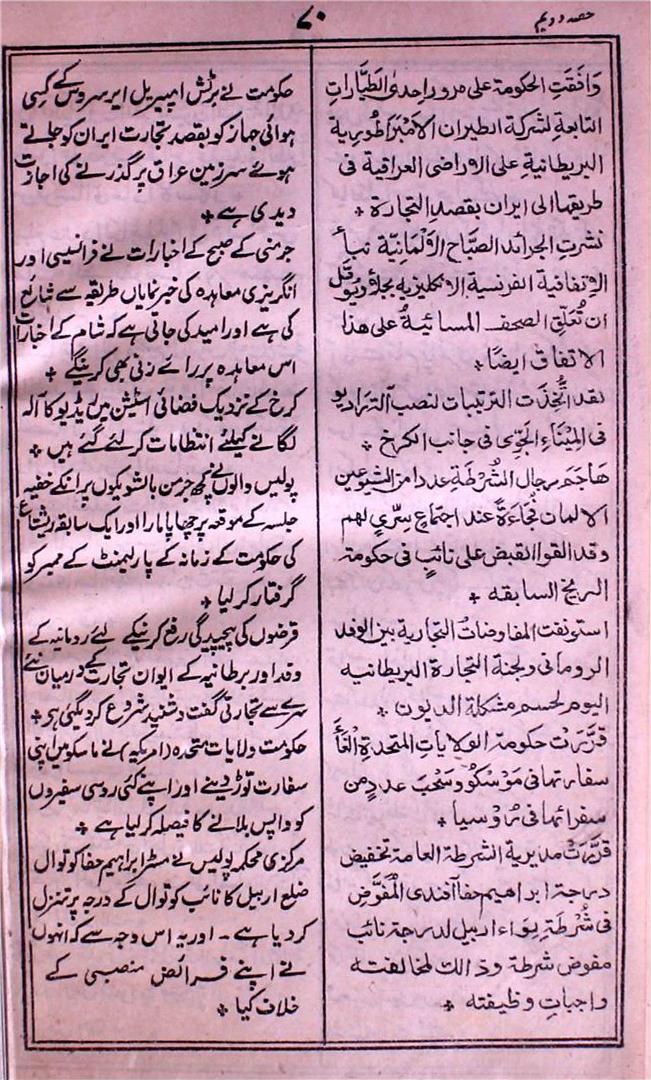 حصہ دویم
۷۰
وَافَقَتِ الحکومة علی مرور احدی الطَّیَّارات
التابعة لشرکة الطیران الامبراطوریة
البریطانیة علی الاراضی العراقیة فی
طریقها الی ایران بقصد التجارة *
نشرت الجرائد الصَّباح الاَلْمانِیَّة نبأ
الاتفاقیة الفرنسیة الانکلیزیه بجلاء ویوقّل
ان تُعَلِّق الصحف المسائیةُ علی هذا
الاتفاق ایضًا *
لقد اتُّخِذَت الترتیبات لنصب آلة رادیو
فی المِیْناءِ الجَوِّی فی جانب الکرخ *
هَاجَمَ رجال الشُّرْطَةِ عددا من الشیوعین
الالمان فُجاءَةً عند اجتماعٍ سِرّیٍ لهم
وقد القوا القبض علی نائبٍ فی حکومة
الریخ السابقه *
استونفت المفاوضات التجاریة بین الوفد
الرومانی ولجنة التجارة البریطانیه
الیوم لحسم مشکلة الدیون *
قَرَّرَتْ حکومة الولایاتِ المتحدةِ الْغَأَ
سفارتها فی مَوْسْکُوْ وسَحْبَ عددٍ من
سفرائها فی رُوْسیا *
قَرَّرَتْ مدیریة الشرطة العامة تخفیض
درجة ابراهیم حقا آفندی الْمُفَوَّض
فی شُرطَةِ لِوَاء اربیل لدرجة نائب
مفوض شرطة وذالك لمخالفته
واجباتِ وظیفته *
حکومت نے برٹش امپیریل ایر سروس کے کسی
ہوائی جہاز کو بقصد تجارت ایران کو جاتے
ہوئے سرزمین عراق پر گذرنے کی اجازت
دیدی ہے *
جرمنی کے صبح کے اخبارات نے فرانسیسی اور
انگریزی معاہدہ کی خبر نمایاں طریقہ سے شائع
کی ہے اور امید کی جاتی ہے کہ شام کے اخبارات
اس معاہدہ پر رائے زنی بھی کرینگے *
کرخ کے نزدیک فضائی اسٹیشن میں ریڈیو کا آلہ
لگانے کیلئے انتظامات کر لئے گئے ہیں *
پولیس والوں نے کچھ جرمن بالشویکوں پر انکے خفیہ
جلسہ کے موقعہ پر چھاپا مارا اور ایک سابقہ ریشتاغ
کی حکومت کے زمانہ کے پارلیمنٹ کے ممبر کو
گرفتار کر لیا *
قرضوں کی پیچیدگی رفع کرنیکے لئے رومانیہ کے
وفد اور برطانیہ کے ایوان تجارت کے درمیان نئے
سرے سے تجارتی گفت و شنید شروع کردیگئی ہی *
حکومت ولایات متحدہ (امریکہ) نے ماسکو میں اپنی
سفارت توڑ دینے اور اپنے کئی روسی سفیروں
کو واپس بلانے کا فیصلہ کر لیا ہے *
مرکزی محکمہ پولیس نے مسٹر ابراہیم حقا کو توال
ضلع اربیل کا نائب کوتوال کے درجہ پر تنزل
کر دیا ہے ۔ اور یہ اس وجہ سے کہ انہوں
نے اپنے فرائض منصبی کے
خلاف کیا *